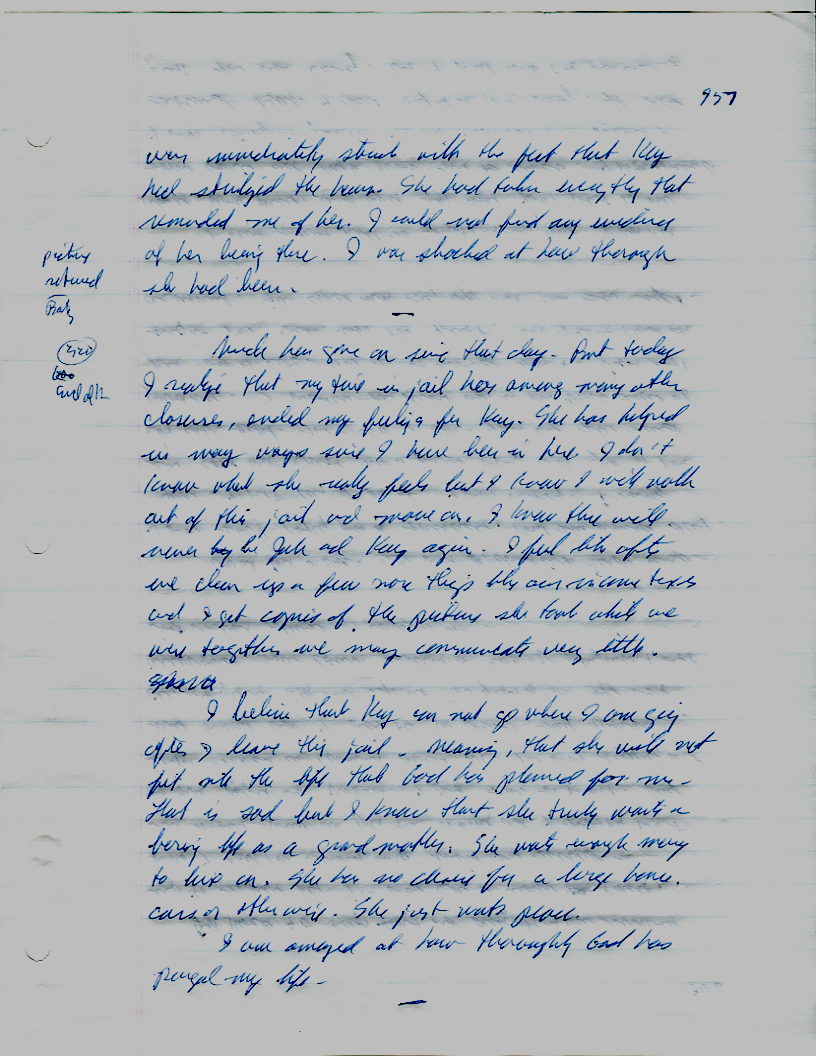 957
was immediately struck with the fact that Kay
had sterilized the house. She had taken everything that
reminded me of her. I could not find any evidence
of her being there. I was shocked at how thorough
she had been.
picture
returned
Much has gone on since that day. But today
I realize that my time in jail has among many other
closures, ended my feelings for Kay. She has helped
in many ways since I have been in here. I don't
know what she really feels but I know I will walk
out of this jail and move on. I know this will
never be and Kay again. I feel like after
we clean up a few more things like our income taxes
and I get copies of the pictures she took while we
were together we may communicate very little.
I believe that Kay can not go where I am going
after I leave this jail. Meaning, that she will not
fit into the life that God has planned for me.
That is sad but I know that she truly wants a
boring life as a grandmother. She wants enough money
to live on. She has no desire for a large home,
cars or otherwise. She just wants peace.
I am amazed at how thoroughly God has
purged my life.